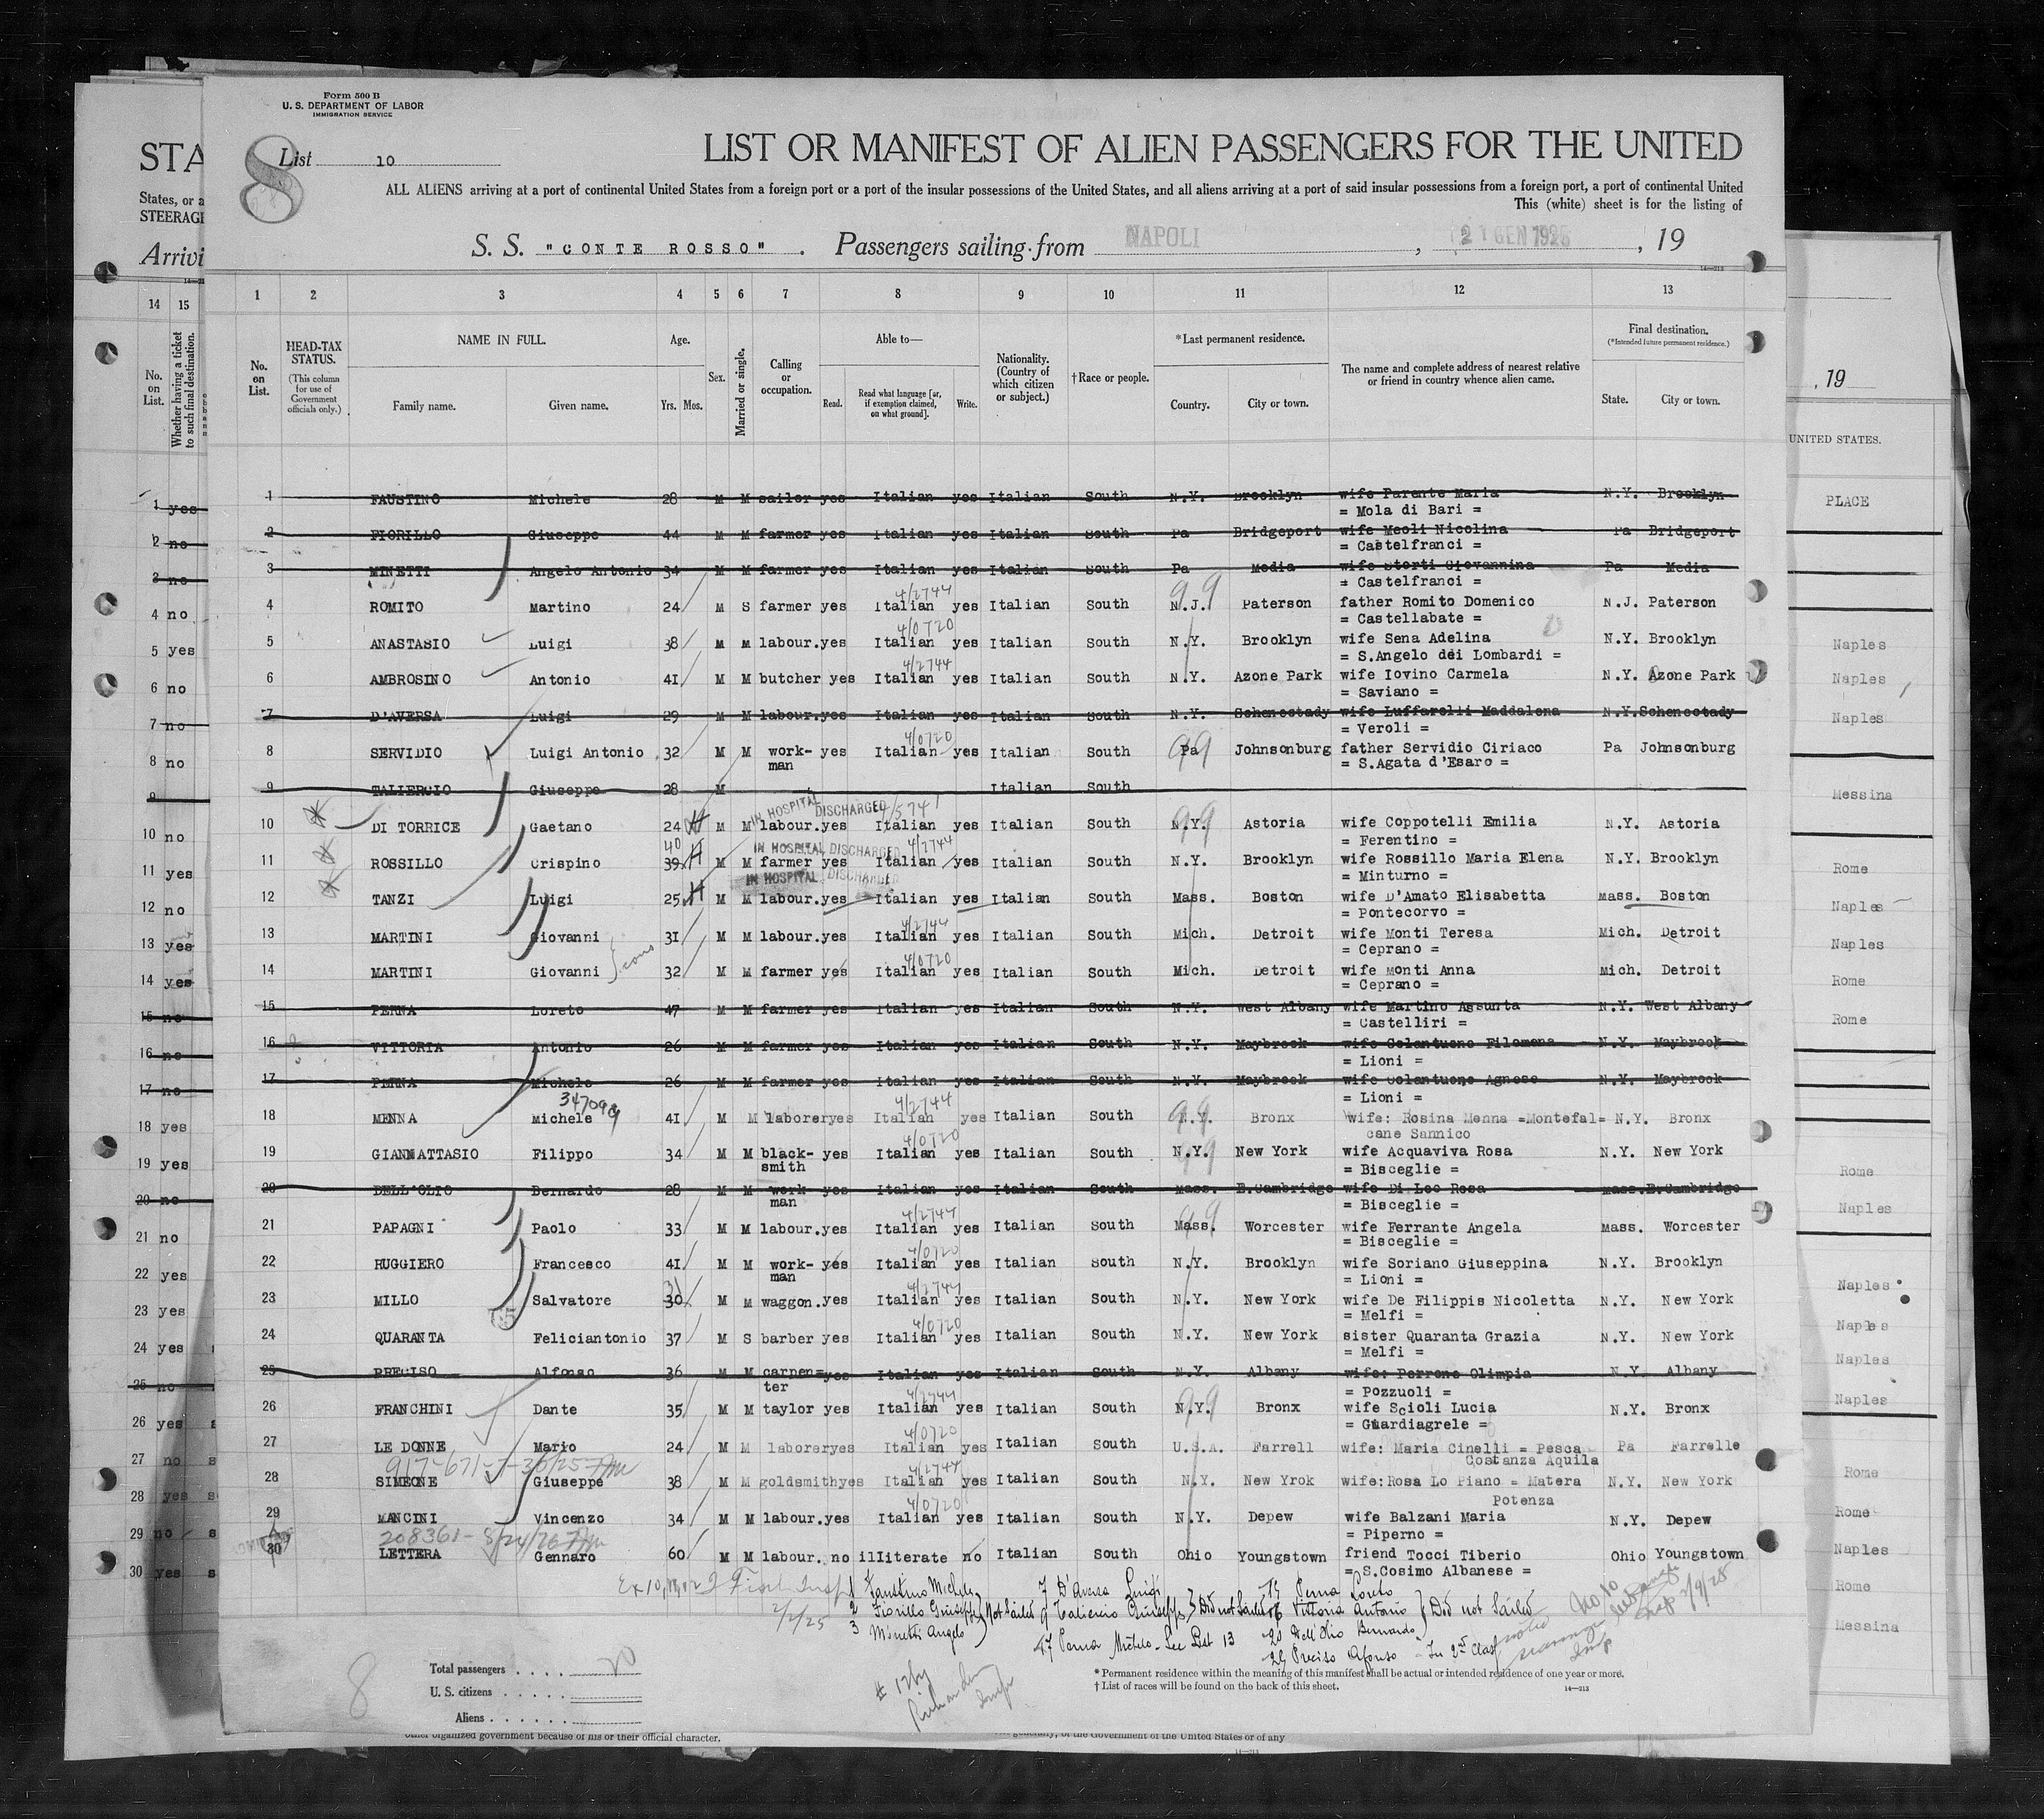 Form 500 B
U. S. DEPARTMENT OF LABOR
IMMIGRATION SERVICE
8
List 10
LIST OR MANIFEST OF ALIEN PASSENGERS FOR THE UNITED
ALL ALIENS arriving at a port of continental United States from a foreign port or a port of the insular possessions of the United States, and all aliens arriving at a port of said insular possessions from a foreign port, a port of continental United
This (white) sheet is for the listing of
S. S. "CONTE ROSSO". Passengers sailing from NAPOLI, 21 GEN 1925, 19
STA
States, or a
STEERAGE
Arrivi
1 2 3 4 5 6 7 8 9 10 11 12 13
14 15
No. on List.
Whether having a ticket to such final destination.
No. on List.
HEAD-TAX STATUS.
(This column for use of Government officials only.)
NAME IN FULL.
Family name. Given name.
Age.
Yrs. Mos.
Sex.
Married or single.
Calling or occupation.
Able to—
Read. Read what language [or, if exemption claimed, on what ground]. Write.
Nationality. (Country of which citizen or subject.)
†Race or people.
*Last permanent residence.
Country. City or town.
The name and complete address of nearest relative or friend in country whence alien came.
Final destination.
(*Intended future permanent residence.)
State. City or town.
, 19
UNITED STATES.
PLACE
1 FAUSTINO Michele 28 M M sailor yes Italian yes Italian South N.Y. Brooklyn wife Parente Maria N.Y. Brooklyn
= Mola di Bari =
2 FIORILLO Giuseppe 44 M M farmer yes Italian yes Italian South Pa Bridgeport wife Meoli Nicolina Pa Bridgeport
= Castelfranci =
3 MINETTI Angelo Antonio 34 M M farmer yes Italian yes Italian South Pa Media wife Storti Giovannina Pa Media
= Castelfranci =
4/2744
99
4 ROMITO Martino 24 M S farmer yes Italian yes Italian South N.J. Paterson father Romito Domenico N.J. Paterson
= Castellabate =
4/0720
5 ANASTASIO Luigi 38 M M labour. yes Italian yes Italian South N.Y. Brooklyn wife Sena Adelina N.Y. Brooklyn
= S.Angelo dei Lombardi =
4/2744
6 AMBROSINO Antonio 41 M M butcher yes Italian yes Italian South N.Y. Azone Park wife Iovino Carmela N.Y. Azone Park
= Saviano =
7 D'AVERSA Luigi 29 M M labour. yes Italian yes Italian South N.Y. Schenectady wife Luffarelli Maddalena N.Y. Schenectady
= Veroli =
4/0720
99
8 SERVIDIO Luigi Antonio 32 M M work- yes Italian yes Italian South Pa Johnsonburg father Servidio Ciriaco Pa Johnsonburg
man = S.Agata d'Esaro =
9 TALIERCIO Giuseppe 28 M Italian South
IN HOSPITAL DISCHARGED
99
10 DI TORRICE Gaetano 24 H M M labour. yes Italian yes Italian South N.Y. Astoria wife Coppotelli Emilia N.Y. Astoria
= Ferentino =
40 IN HOSPITAL DISCHARGED 4/2744
11 ROSSILLO Crispino 39 H M M farmer yes Italian yes Italian South N.Y. Brooklyn wife Rossillo Maria Elena N.Y. Brooklyn
= Minturno =
IN HOSPITAL DISCHARGED
12 TANZI Luigi 25 H M M labour. yes Italian yes Italian South Mass. Boston wife D'Amato Elisabetta Mass. Boston
= Pontecorvo =
4/2744
13 MARTINI Giovanni 31 M M labour. yes Italian yes Italian South Mich. Detroit wife Monti Teresa Mich. Detroit
= Ceprano =
cous
4/0720
14 MARTINI Giovanni 32 M M farmer yes Italian yes Italian South Mich. Detroit wife Monti Anna Mich. Detroit
= Ceprano =
15 PERNA Loreto 47 M M farmer yes Italian yes Italian South N.Y. West Albany wife Martino Assunta N.Y. West Albany
= Castelliri =
16 VITTORIA Antonio 26 M M farmer yes Italian yes Italian South N.Y. Maybrook wife Colantuono Filomena N.Y. Maybrook
= Lioni =
17 PERNA Michele 26 M M farmer yes Italian yes Italian South N.Y. Maybrook wife Colantuono Agnese N.Y. Maybrook
= Lioni =
34709
4/2744
99
18 MENNA Michele 41 M M laborer yes Italian yes Italian South N.Y. Bronx wife: Rosina Menna =Montefal= N.Y. Bronx
cane Sannico
4/0720
99
19 GIANNATTASIO Filippo 34 M M black- yes Italian yes Italian South N.Y. New York wife Acquaviva Rosa N.Y. New York
smith = Bisceglie =
20 DELL'OLIO Bernardo 28 M M work- yes Italian yes Italian South Mass. E.Cambridge wife Di Leo Rosa Mass. E.Cambridge
man = Bisceglie =
4/2744
99
21 PAPAGNI Paolo 33 M M labour. yes Italian yes Italian South Mass. Worcester wife Ferrante Angela Mass. Worcester
= Bisceglie =
4/0720
22 RUGGIERO Francesco 41 M M work- yes Italian yes Italian South N.Y. Brooklyn wife Soriano Giuseppina N.Y. Brooklyn
man = Lioni =
31 4/2744
23 MILLO Salvatore 30 M M waggon. yes Italian yes Italian South N.Y. New York wife De Filippis Nicoletta N.Y. New York
= Melfi =
4/0720
24 QUARANTA Feliciantonio 37 M S barber yes Italian yes Italian South N.Y. New York sister Quaranta Grazia N.Y. New York
= Melfi =
25 PRECISO Alfonso 36 M M carpen= yes Italian yes Italian South N.Y. Albany wife: Perrone Olimpia N.Y. Albany
ter = Pozzuoli =
4/2744
99
26 FRANCHINI Dante 35 M M taylor yes Italian yes Italian South N.Y. Bronx wife Scioli Lucia N.Y. Bronx
= Guardiagrele =
4/0720
27 LE DONNE Mario 24 M M laborer yes Italian yes Italian South U.S.A. Farrell wife: Maria Cinelli = Pesca Pa Farrelle
Costanza Aquila
4/2744
28 SIMEONE Giuseppe 38 M M goldsmith yes Italian yes Italian South N.Y. New Yrok wife: Rosa Lo Piano = Matera N.Y. New York
Potenza
4/0720
29 MANCINI Vincenzo 34 M M labour. yes Italian yes Italian South N.Y. Depew wife Balzani Maria N.Y. Depew
= Piperno =
208361- 8/24/26
30 LETTERA Gennaro 60 M M labour. no illiterate no Italian South Ohio Youngstown friend Tocci Tiberio Ohio Youngstown
= S.Cosimo Albanese =
1 yes
2 no
3 no
4 no
5 yes
6 no
7 no
8 no
9
10 no
11 yes
12 no
13 yes
14 yes
15 no
16 no
17 no
18 yes
19 yes
20 no
21 no
22 yes
23 yes
24 yes
25 no
26 yes
27 no
28 yes
29 no
30 yes
Naples
Naples
Naples
Messina
Rome
Naples
Naples
Rome
Rome
Rome
Naples
Naples
Naples
Naples
Naples
Rome
Rome
Naples
Rome
Messina
2/2/25
1 Faustino Michele
2 Fiorillo Giuseppe } Not Sailed
3 Minetti Angelo
7 D'Aversa Luigi
9 Taliercio Giuseppe } Did not Sailed
15 Perna Loreto
16 Vittoria Antonio } Did not Sailed
20 Dell'Olio Bernardo
17 Perna Michele - See List 13
25 Preciso Afonso - In 2nd Class
8
Total passengers . . . . 20
U. S. citizens . . . . .
Aliens . . . . . .
* Permanent residence within the meaning of this manifest shall be actual or intended residence of one year or more.
† List of races will be found on the back of this sheet.
14—213
other organized government because of his or their official character.
the Government of the United States or of any